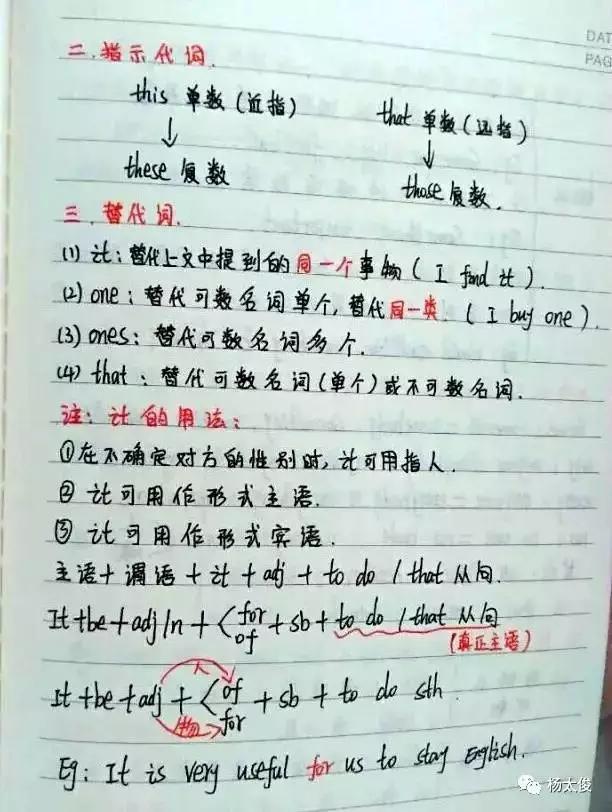 DAT
PAG
二.指示代词.
this 单数(近指) that 单数(远指)
↓ ↓
these 复数 those 复数.
三.替代词.
(1) it:替代上文中提到的同一个事物 ( I find it ).
(2) one:替代可数名词单个,替代同一类. ( I buy one ).
(3) ones:替代可数名词多个.
(4) that:替代可数名词(单个)或不可数名词.
注: it 的用法:
①在不确定对方的性别时, it 可用指人.
② it 可用作形式主语.
③ it 可用作形式宾语.
主语+谓语+it+adj+to do / that 从句.
It+be+adj/n+<for/of+sb+to do / that 从句
(真正主语)
人
It+be+adj+<of/for+sb+to do sth.
物
Eg: It is very useful for us to stay English.
杨太俊